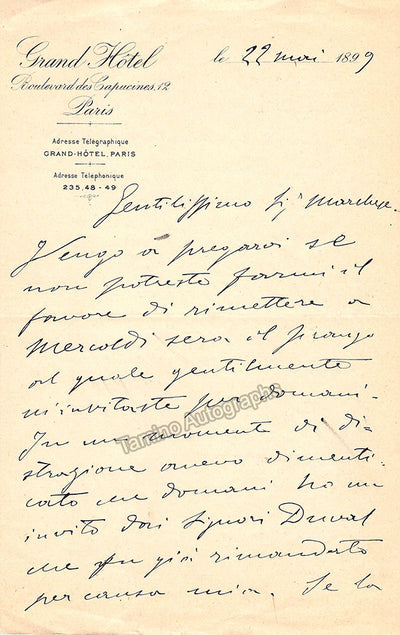 Grand Hôtel
Boulevard des Capucines, 12
Paris
Adresse Télégraphique
GRAND-HÔTEL, PARIS
Adresse Téléphonique
235,48-49
le 22 mai 1899
Gentilissimo Sig Marchese.
Vengo a pregarvi se
non potreste farmi il
favore di rimettere a
Mercoldi sera il pranzo
al quale gentilmente
m'invitaste per domani.
In un momento di di-
strazione avevo dimenti-
cato che domani ho un
invito dai Signori Duval
che fu già rimandato
per causa mia. Se la
Tamino Autographs